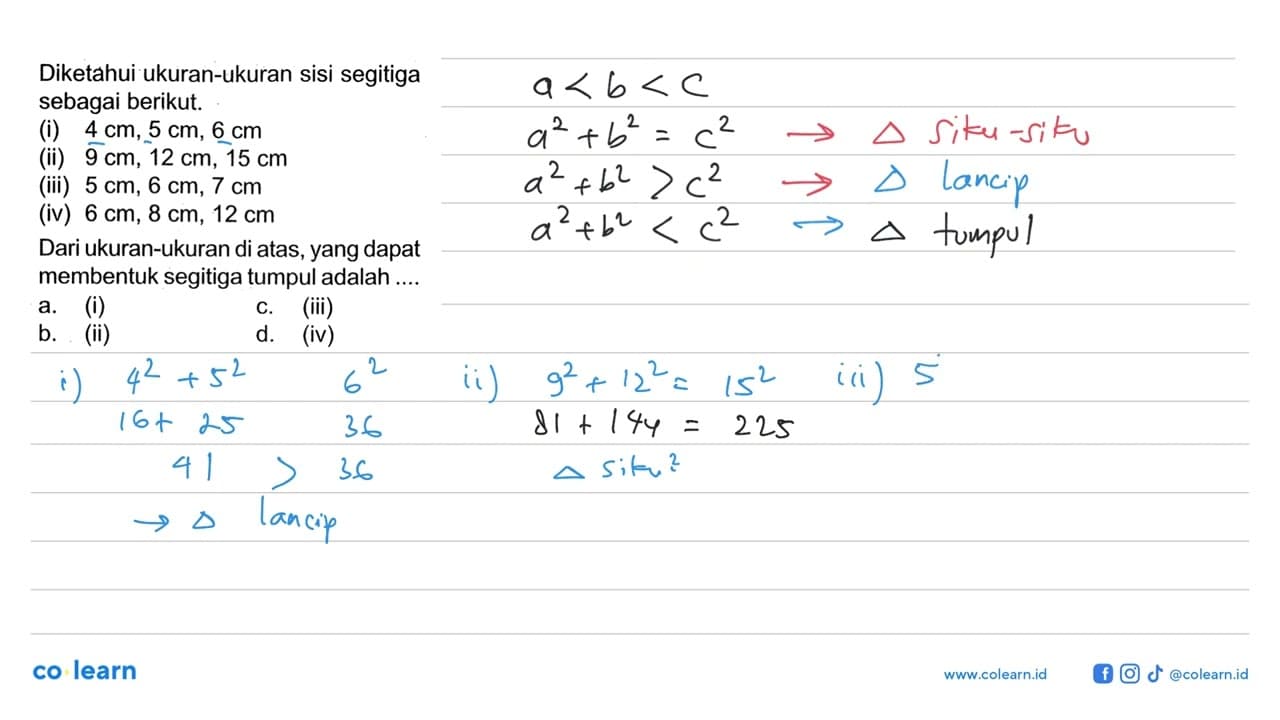 Diketahui ukuran-ukuran sisi segitiga
sebagai berikut.
(i) 4 cm, 5 cm, 6 cm
(ii) 9 cm, 12 cm, 15 cm
(iii) 5 cm, 6 cm, 7 cm
(iv) 6 cm, 8 cm, 12 cm
Dari ukuran-ukuran di atas, yang dapat
membentuk segitiga tumpul adalah ....
a. (i) c. (iii)
b. (ii) d. (iv)
a < b < c
a² + b² = c² → △ siku-siku
a² + b² > c² → △ lancip
a² + b² < c² → △ tumpul
i) 4² + 5² 6²
16 + 25 36
41 > 36
→ △ lancip
ii) 9² + 12² = 15²
81 + 144 = 225
△ siku²
iii) 5
co learn
www.colearn.id
@colearn.id